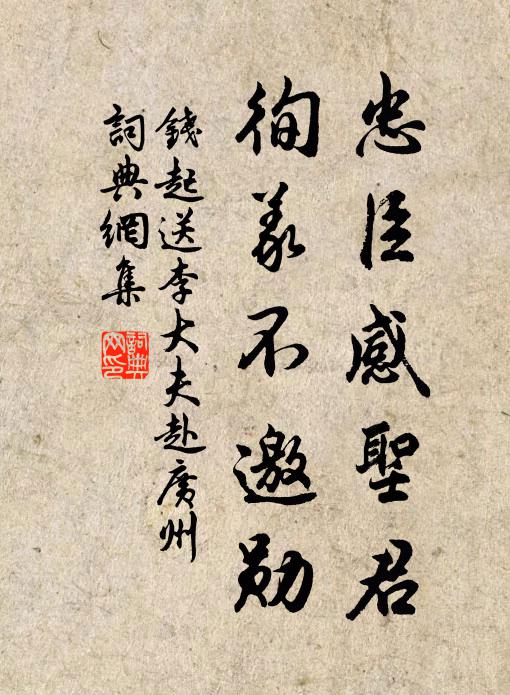 忠臣感聖君
徇義不邀勛
錢起送李大夫赴廣州
詞典網集
詞典網印